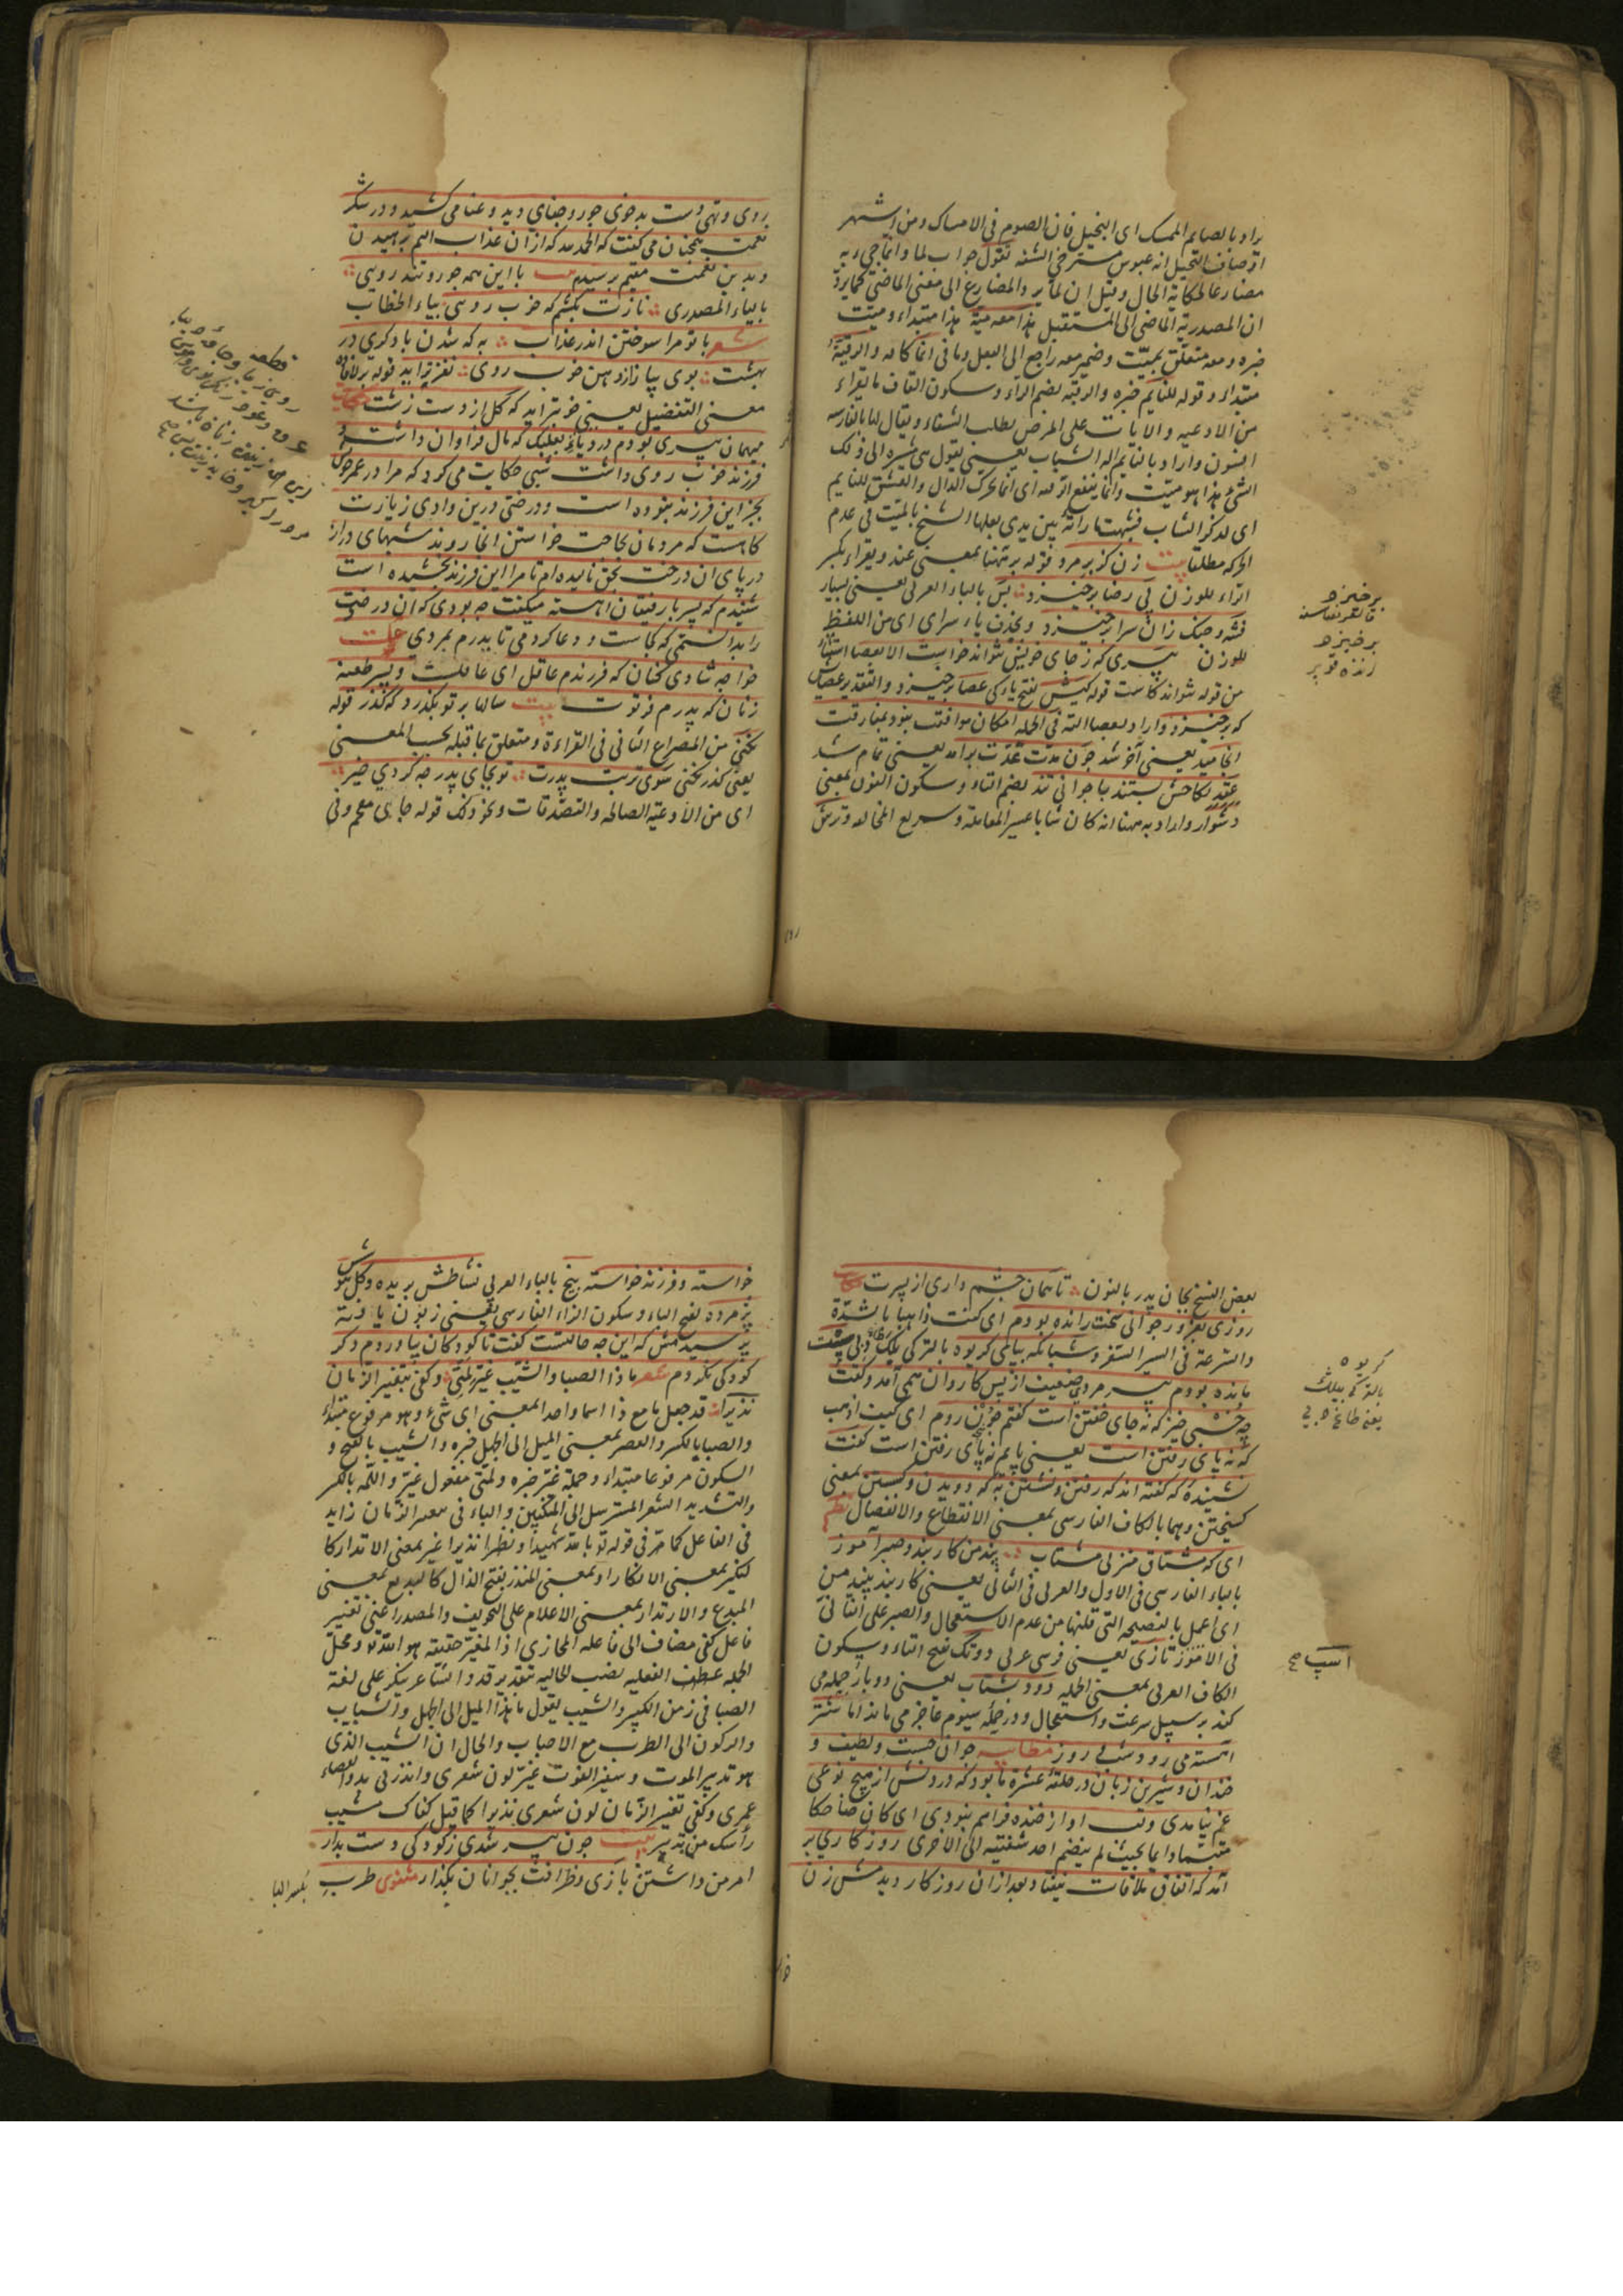 براد بالصایم الممسک ای البخیل فان الصوم فی الامساک ومن اشتهر
اوصاف البخیل انه عبوس مسترخی الشفه تقول جواب لما وانما جیء به
مضارعا لحکایة الحال وقیل ان لما یرد المضارع الی معنی الماضی کما یرد
ان المصدریة الماضی الی المستقبل هذا معه میت هذا مبتداء ومیت
خبره ومعه متعلق بمیّت وضمیر معه راجع الی البعل وما فی انما کافه والرقیة
مبتداء وقوله للنایم خبره والرقیه بضم الراء وسکون القاف ما یقراء
من الادعیه والایات علی المرض بطلب الشفاء ویقال لها بالفارسیه
افسون واراد بالنایم اله الشباب یعنی تقول هی مشیره الی ذلک
الشیء هذا هو میّت وانما ینفع الرقیه ای انما یحرک الدال والعشق للنایم
ای لذکر الشاب فشبهت رأته بین یدی بعلها الشیخ بالمیّت فی عدم
الحرکه مطلقا بیت زن کز بر مرد قوله بر ههنا بمعنی عند ویقراء بکسر
الراء للوزن بی رضا برخیزد بس بالباء العربی یعنی بسیار
فتنه وجنک زان سرا برخیزد وبحذف یاء سرای ای من اللفظ
للوزن پیری که ز جای خویش نتواند خواست الا بعصا استثناء
من قوله نتواند خاست قوله کیش بفتح یاء کی عصا برخیزد والتقدیر عصاش
که برخیزد واراد بعصا التی فی الجمله امکان موافقت نبود بمفارقت
انجامید یعنی آخر شد چون مدت عدّت برآمد یعنی تمام شد
عقد نکاحش بستند با جوانی تند بضم التاء وسکون النون بمعنی
دشوار واراد به ههنا انه کان شابا عسیر المعامله وسریع المخالفه وترش
برخیزد
برخیزد
روی وتهی دست بدخوی جور وجفای دید وعنا می کشید ودر شکر
نعمت همچنان می گفت که الحمد لله که از ان عذاب الیم برهیدن
وبدین نعمت مقیم برسیدم بیت با این همه جور وتند رویی
بالیاء المصدری نازت بکشم که خوب رویی بیاء الخطاب
شعر با تو مرا سوختن اندر عذاب به که شدن با دکری در
بهشت بوی پیاز از دهن خوب روی نغزتر اید قوله
معنی التفضیل یعنی خوبتر اید که گل از دست زشت حکایت
مهمان پیری بودم در دیار بعلبک که مال فراوان داشت و
فرزند خوب روی داشت شبی حکایت می کرد که مرا در عمر خویش
بجز این فرزند نبوده است ودرختی درین وادی زیارت
کاهست که مردمان بحاجت خواستن انجا روند شبهای دراز
در پای ان درخت بحق نالیده ام تا مرا این فرزند بخشیده است
شنیدم که پسر با رفیقان اهسته میگفت چه بودی که ان درخت
را بدانستمی که کجاست ودعا کردمی تا پدرم بمردی حکمت
خواجه شادی کنان که فرزندم عاقل ای عاقلست وپسر طعنه
زنان که پدرم فرتوت بیت سالها بر تو بگذرد که گذر قوله
نکنی من المصراع الثانی فی القراءة ومتعلق بما قبله بحسب المعنی
یعنی گذر نکنی سوی تربت پدرت تو بجای پدر چه کردی خیر
ای من الأدعیة الصالحه والتصدقات ونحو ذلک قوله جای معجم وفی
قطعه
روی زیبا وجامهٔ دیبا
عرق وعود ورنک وبوی وهوس
این همه زینت زنان باشد
مرد را کیر وخایه زینت بس
بعض النسخ بجان پدر بالنون تا همان چشم داری از پسرت حکایت
روزی بغرور جوانی سخت رانده بودم ای کنت ذاهبا بالشدّة
والسرعة فی السیر والسفر وشبانکه بپای کریوه بالترکی بلک دبی سست
مانده بودم پیر مردی ضعیف از پس کاروان همی آمد وگفت
چه خسبی خیز که نه جای خفتن است گفتم چون روم ای کیف اذهب
که نه پای رفتن است یعنی پایم نه پای رفتن است گفت
نشنیده که گفته اند که رفتن ونشستن به که دویدن وگسستن بمعنی
گسیختن وهما بالکاف الفارسی بمعنی الانقطاع والانفصال نظم
ای که مشتاق منزلی مشتاب پند من کار بند وصبر آموز
بالباء الفارسی فی الاول والعربی فی الثانی یعنی کار بند پند من
ای اعمل بالنصیحه التی قلتها من عدم الاستعجال والصبر علی التأنی
فی الامور اسپ تازی یعنی فرسی عربی دو تک بفتح التاء وسکون
الکاف العربی بمعنی الحمله رود بشتاب یعنی دو بار حمله می
کند بر سبیل سرعت واستعجال ودر حمله سیوم عاجز می ماند اما شتر
اهسته می رود شب وروز مطایبه جوانی جست ولطیف و
خندان وشیرین زبان در حلقهٔ عشرة ما بود که در دلش از هیچ نوعی
غم نیامدی ولب او از خنده فراهم نبودی ای کان ضاحکا
متبسّما دایما بحیث لم ینضم احد شفتیه الی الاخری روزکاری بر
آمد که اتفاق ملاقات نیفتاد بعد از ان روزکار دیدمش زن
کریوه
اسپ صح
خواسته وفرزند خواسته بیخ بالباء العربی نشاطش بریده وگل هوش
پژمرده بفتح الباء وسکون الزاء الفارسی یعنی زبون یافته
پرسیدمش که این چه حالتست گفت تا کودکان بیاوردم دکر
کودکی نکردم شعر ماذا الصبا والشیب غیّر لمّتی وکفی بتغییر الزمان
نذیرا قد جعل ما مع ذا اسما واحدا بمعنی ای شیء وهو مرفوع مبتداء
والصبا بالکسر والقصر بمعنی المیل الی الجهل خبره والشیب بالفتح و
السکون مرفوعا مبتداء وجملة غیّر خبره ولمتی مفعول غیّر واللمه بالکسر
والتشدید الشعر المسترسل الی المنکبین والباء فی بتغییر الزمان زاید
فی الفاعل کما مرّ فی قوله تع بالله شهیدا ونظرا نذیرا غیر بمعنی الانذار کا
لنکیر بمعنی الانکار او بمعنی المنذر بفتح الذال کالبدیع بمعنی
المبدع والانذار بمعنی الاعلام علی التخویف والمصدر اعنی تغییر
فاعل کفی مضاف الی فاعله المجازی اذ المغیّر حقیقة هو الله تع ومحل
الجمله عطف الفعلیه نصب للحالیه بتقدیر قد والشاعر ینکر علی لغة
الصبا فی زمن الکبر والشیب یقول ما هذا المیل الی الجهل والشباب
والرکون الی الطرب مع الاحباب والحال ان الشیب الذی
هو نذیر الموت وسفیر الفوت غیّر لون شعری وانذرنی بدو انقضاء
عمری وکفی تغییر الزمان لون شعری نذیرا کما قیل کفاک مشیب
رأسک من نذیر بیت چون پیر شدی ز کودکی دست بدار
امر من داشتن بازی وظرافت بجوانان بگذار مثنوی طرب
بکسر البا